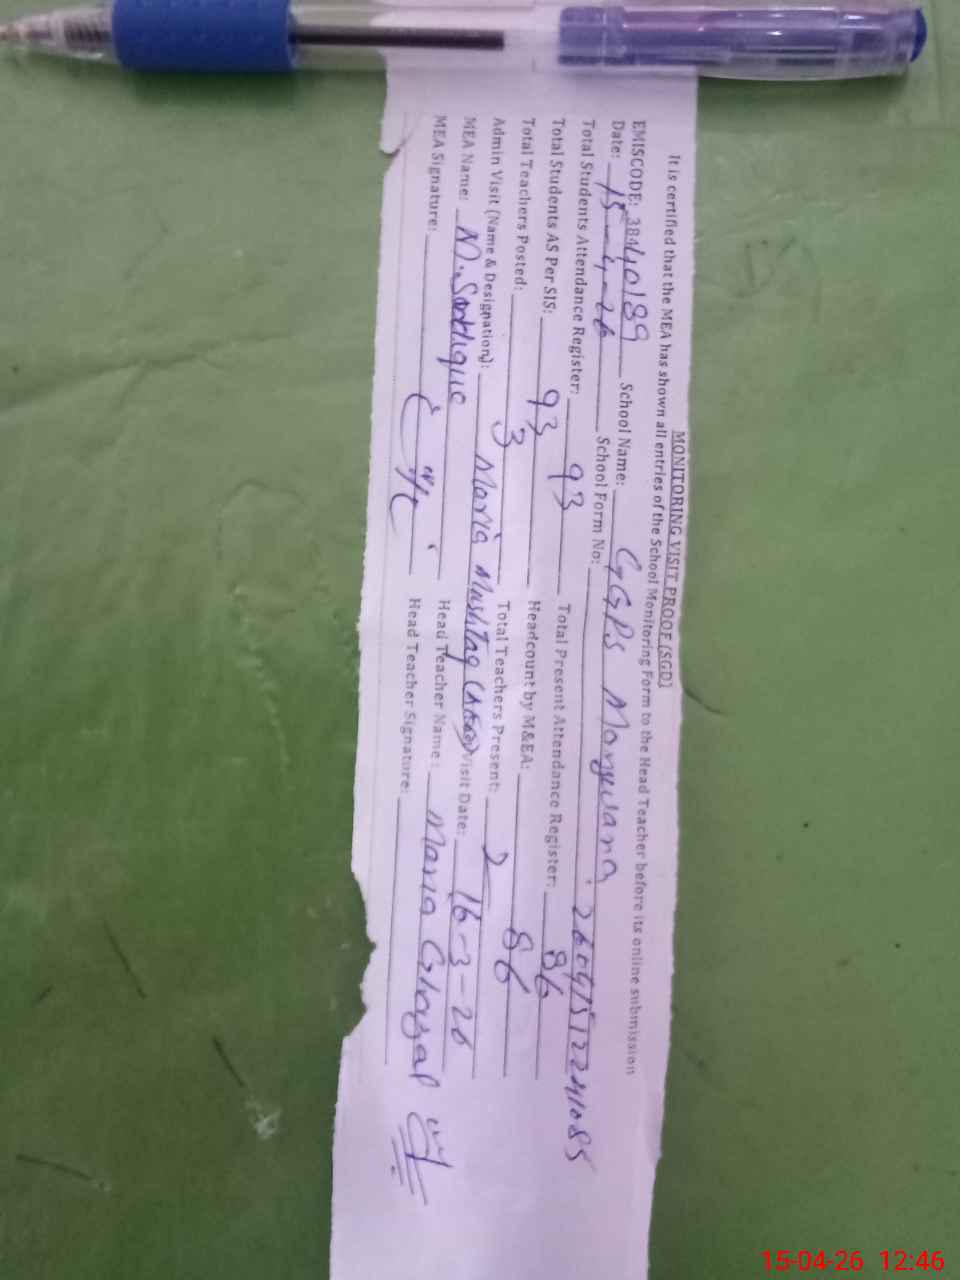 MONITORING VISIT PROOF (SGD)
It is certified that the MEA has shown all entries of the School Monitoring Form to the Head Teacher before its online submission
EMISCODE: 38440189 School Name: GGPS Mangwana
Date: 15-4-26 School Form No:
Total Students Attendance Register: 93 Total Present Attendance Register: 86
Total Students AS Per SIS: 93 Headcount by M&EA: 86
Total Teachers Posted: 3 Total Teachers Present: 2
Admin Visit (Name & Designation): Maria Mushtaq (AEO) Visit Date: 16-3-26
MEA Name: M. Siddique Head Teacher Name: Maria Ghazal
MEA Signature: Head Teacher Signature:
15-04-26 12:46